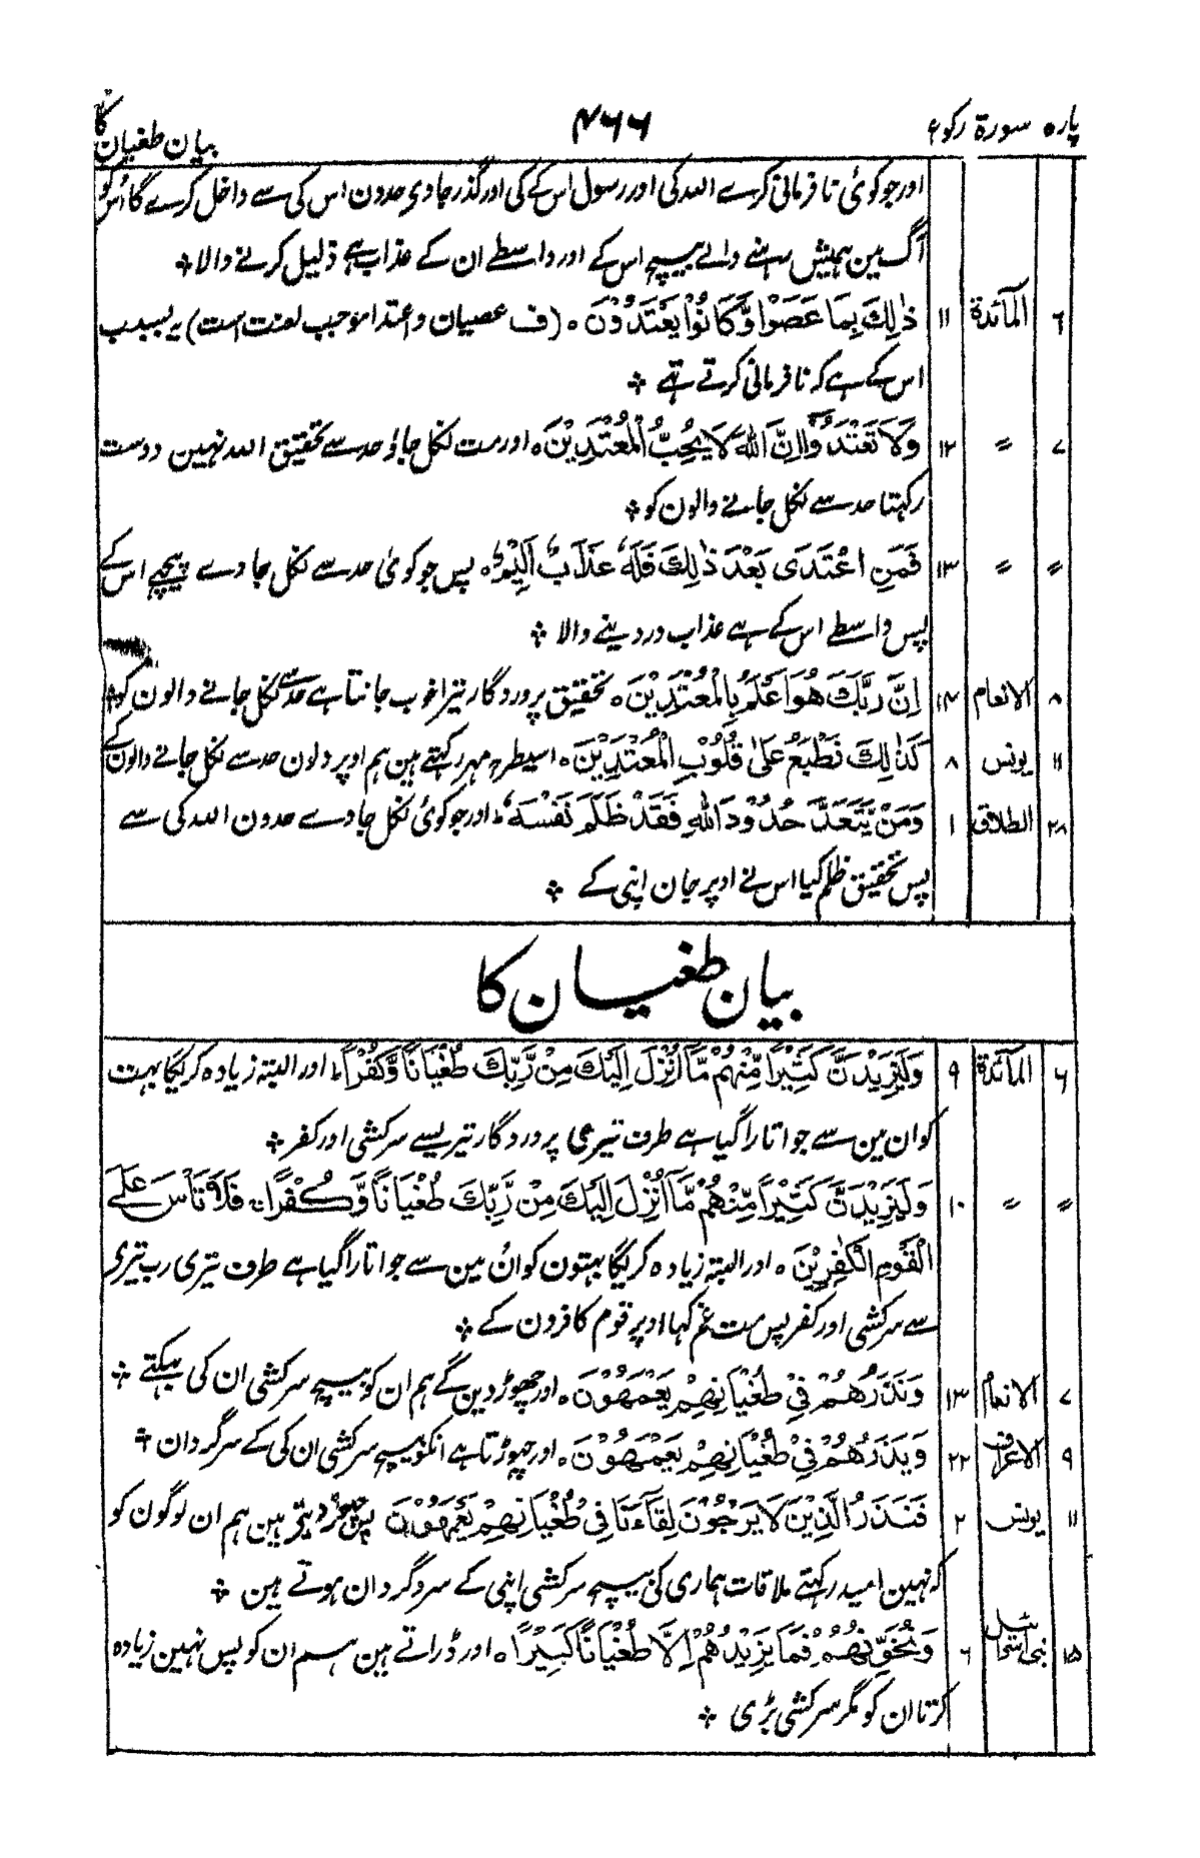 پارہ سورۃ رکوع ۴۶۶ بیان طغیان کا
اورجوکوئی نافرمانی کرے اللہ کی اور رسول اس کے کی اور گذر جاوے حدون اس کی سے داخل کرے گا اُس کو
آگ مین ہمیش رہنے والے بیچ اس کے اور واسطے ان کے عذاب ہے ذلیل کرنے والا ❖
۶ المآئدۃ ۱۱ ذٰلِكَ بِمَا عَصَوْا وَّكَانُوْا يَعْتَدُوْنَ ○ (ف عصیان واعتدا موجب لعنت است) یہ بسبب
اس کے ہے کہ نافرمانی کرتے تھے ❖
۷ 〃 ۱۲ وَلَا تَعْتَدُوْا اِنَّ اللهَ لَا يُحِبُّ الْمُعْتَدِيْنَ ○ اور مت نکل جاؤ حد سے تحقیق اللہ نہین دوست
رکہتا حد سے نکل جانے والون کو ❖
〃 〃 ۱۳ فَمَنِ اعْتَدٰى بَعْدَ ذٰلِكَ فَلَهٗ عَذَابٌ اَلِيْمٌ ○ پس جو کوئی حد سے نکل جاوے پیچھے اس کے
پس واسطے اس کے ہے عذاب درد دینے والا ❖
۸ الانعام ۱۴ اِنَّ رَبَّكَ هُوَ اَعْلَمُ بِالْمُعْتَدِيْنَ ○ تحقیق پروردگار تیرا خوب جانتا ہے حد سے نکل جانے والون کو ❖
۱۱ یونس ۸ كَذٰلِكَ نَطْبَعُ عَلٰى قُلُوْبِ الْمُعْتَدِيْنَ ○ اسیطرح مہر رکہتے ہین ہم اوپر دلون حد سے نکل جانے والون کے
۲۸ الطلاق ۱ وَمَنْ يَّتَعَدَّ حُدُوْدَ اللهِ فَقَدْ ظَلَمَ نَفْسَهٗ ؕ اور جو کوئی نکل جاوے حدون اللہ کی سے
پس تحقیق ظلم کیا اس نے اوپر جان اپنی کے ❖
بیان طغیان کا
۶ المآئدۃ ۹ وَلَيَزِيْدَنَّ كَثِيْرًا مِّنْهُمْ مَّا اُنْزِلَ اِلَيْكَ مِنْ رَّبِّكَ طُغْيَانًا وَّكُفْرًا ؕ اور البتہ زیادہ کریگا بہت
کو ان مین سے جو اتارا گیا ہے طرف تیری پروردگار تیرے سے سرکشی اور کفر ❖
〃 〃 ۱۰ وَلَيَزِيْدَنَّ كَثِيْرًا مِّنْهُمْ مَّا اُنْزِلَ اِلَيْكَ مِنْ رَّبِّكَ طُغْيَانًا وَّكُفْرًا ۚ فَلَا تَاْسَ عَلَى
الْقَوْمِ الْكٰفِرِيْنَ ○ اور البتہ زیادہ کریگا بہتون کو اُن مین سے جو اتارا گیا ہے طرف تیری رب تیری
سے سرکشی اور کفر پس مت غم کہا اوپر قوم کافرون کے ❖
۷ الانعام ۱۳ وَنَذَرُهُمْ فِيْ طُغْيَانِهِمْ يَعْمَهُوْنَ ○ اور چھوڑ دین گے ہم ان کو بیچ سرکشی ان کی بہکتے ❖
۹ الاعراف ۲۲ وَيَذَرُهُمْ فِيْ طُغْيَانِهِمْ يَعْمَهُوْنَ ○ اور چھوڑتا ہے انکو بیچ سرکشی ان کی کے سرگردان ❖
۱۱ یونس ۲ فَنَذَرُ الَّذِيْنَ لَا يَرْجُوْنَ لِقَآءَنَا فِيْ طُغْيَانِهِمْ يَعْمَهُوْنَ پس چھوڑ دیتے ہین ہم ان لوگون کو
کہ نہین امید رکہتے ملاقات ہماری کی بیچ سرکشی اپنی کے سروگردان ہوتے ہین ❖
۱۵ بنی اسرائیل ۶ وَنُخَوِّفُهُمْ فَمَا يَزِيْدُهُمْ اِلَّا طُغْيَانًا كَبِيْرًا ○ اور ڈراتے ہین ہم ان کو پس نہین زیادہ
کرتا ان کو مگر سرکشی بڑی ❖